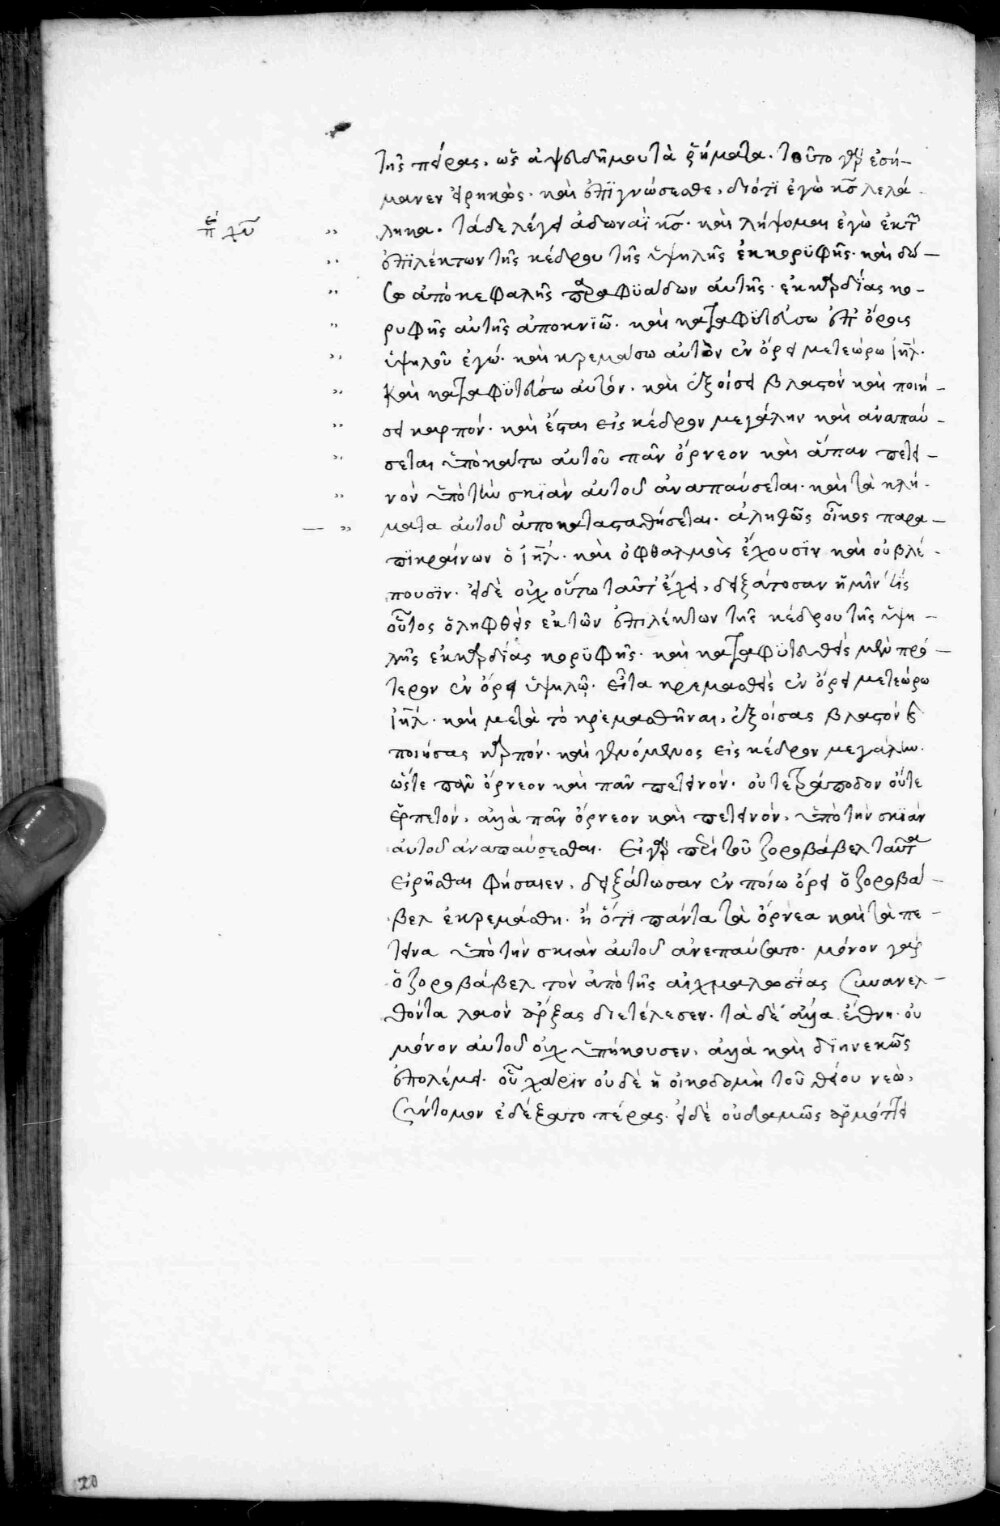 τῆς πείρας, ὡς ἀψευδῆ μου τὰ ῥήματα. τοῦτο γὰρ ἐσή-
μανεν εἰρηκὼς· καὶ ἐπϊγνώσεσθε, διότϊ ἐγὼ κ̅ς̅ λελά-
ληκα. τάδε λέγει ἀδωναῒ κ̅ς̅· καὶ λήψομαι ἐγὼ ἐκ τῶν
ἐπϊλέκτων τῆς κέδρου τῆς ὑψηλῆς ἐκ κορϋφῆς· καὶ δώ-
σω ἀπὸ κεφαλῆς παραφϋάδων αὐτῆς· ἐκ καρδΐας κο-
ρυφῆς αὐτῆς ἀποκνϊῶ· καὶ καταφϋτεύσω ἐπ' ὄρους
ὑψηλοῦ ἐγώ· καὶ κρεμάσω αὐτὸν ἐν ὄρει μετεώρω ι̅η̅λ̅.
Καὶ καταφϋτεύσω αὐτόν· καὶ ἐξοίσει βλαστὸν καὶ ποιή-
σει καρπόν· καὶ ἔσται εἰς κέδρον μεγάλην καὶ ἀναπαύ-
σεται ὑποκάτω αὐτοῦ πᾶν ὄρνεον καὶ ἅπαν πετει-
νὸν ὑπὸ τὴν σκϊὰν αὐτοῦ ἀναπαύσεται· καὶ τὰ κλή-
ματα αὐτοῦ ἀποκατασταθήσεται. ἀληθῶς οἶκος παρα-
πϊκραίνων ὁ ι̅η̅λ̅· καὶ ὀφθαλμοὺς ἔχουσϊν καὶ οὐ βλέ-
πουσϊν· εἰ δὲ οὐχ οὕτω ταῦτ' ἔχει, δειξάτοσαν ἡμῖν τίς
οὗτος ὁ ληφθεὶς ἐκ τῶν ἐπιλέκτων τῆς κέδρου τῆς ὑψη-
λῆς ἐκ καρδίας κορϋφῆς· καὶ καταφϋτευθεὶς μὲν πρό-
τερον ἐν ὄρει ὑψηλῷ· εἶτα κρεμασθεὶς ἐν ὄρει μετεώρω
ι̅η̅λ̅· καὶ μετὰ τὸ κρεμασθῆναι, ἐξοίσας βλαστὸν καὶ
ποιήσας καρπόν· καὶ γενόμενος εἰς κέδρον μεγάλην.
ὥστε πᾶν ὄρνεον καὶ πᾶν πετεινόν· οὐ τετράποδον οὔτε
ἑρπετόν, ἀλλὰ πᾶν ὄρνεον καὶ πετεινόν, ὑπὸ τὴν σκϊὰν
αὐτοῦ ἀναπαύσεσθαι. Εἰ γὰρ περὶ τοῦ ζοροβάβελ ταῦτα
εἰρῆσθαι φήσαιεν, δειξάτωσαν ἐν ποίω ὄρει ὁ ζοροβά-
βελ ἐκρεμάσθη· ἢ ὅτϊ πάντα τὰ ὄρνεα καὶ τὰ πε-
τεινα ὑπὸ τὴν σκιὰν αὐτοῦ ἀνεπαύσατο· μόνον γὰρ
ὁ ζοροβάβελ τὸν ἀπὸ τῆς αἰχμαλωσΐας συνανελ-
θόντα λαὸν ἄρξας διετέλεσεν· τὰ δὲ ἄλλα ἔθνη· οὐ
μόνον αὐτοῦ οὐχ ὑπήκουσεν, ἀλλὰ καὶ δϊηνεκῶς
ἐπολέμει· οὗ χάρϊν οὐδὲ ἡ οἰκοδομὴ τοῦ θείου νεὼ,
σύντομον ἐδέξατο πέρας· εἰ δὲ οὐδαμῶς ἁρμόττει
20